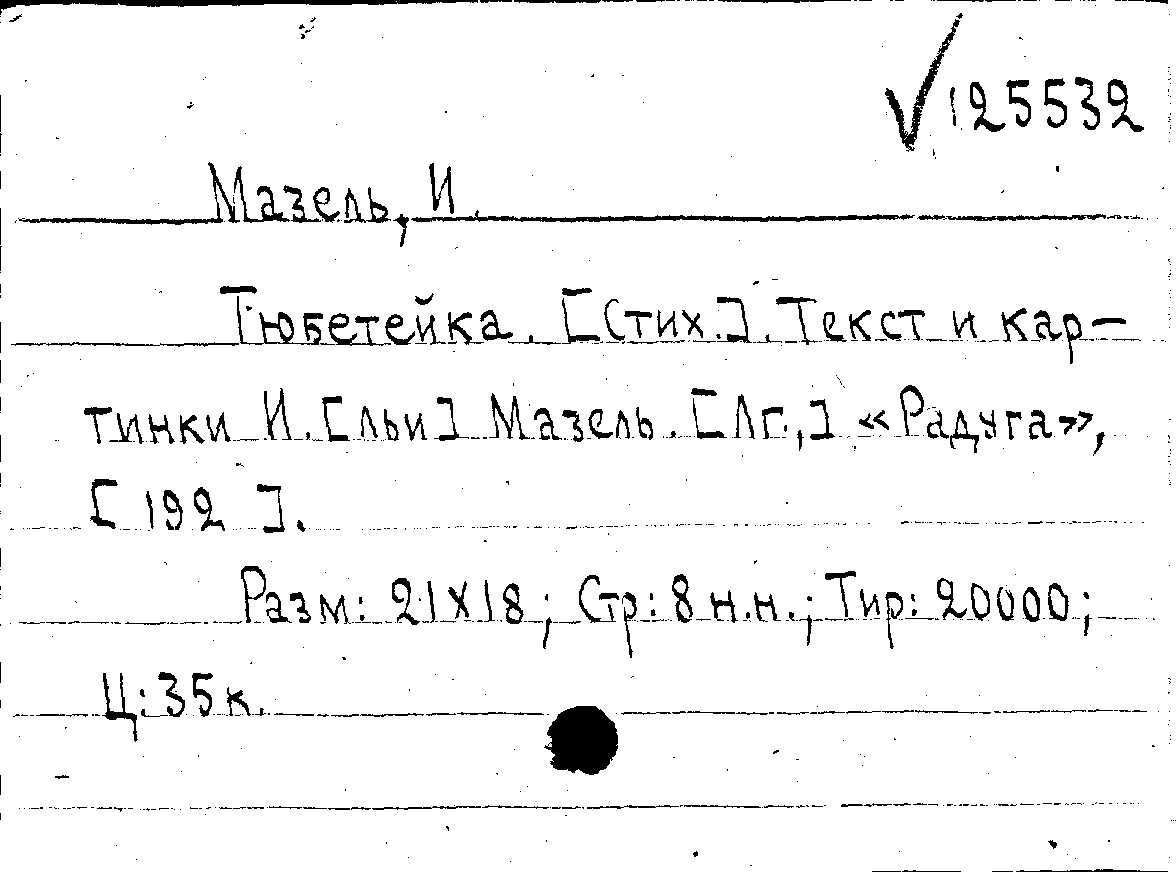 √125532
Мазель, И.
Тюбетейка. [Стих.]. Текст и кар-
тинки И.[льи] Мазель. [Лг.,] «Радуга»,
[ 192 ].
Разм: 21X18; Стр: 8 н.н.; Тир: 20000;
Ц: 35 к.